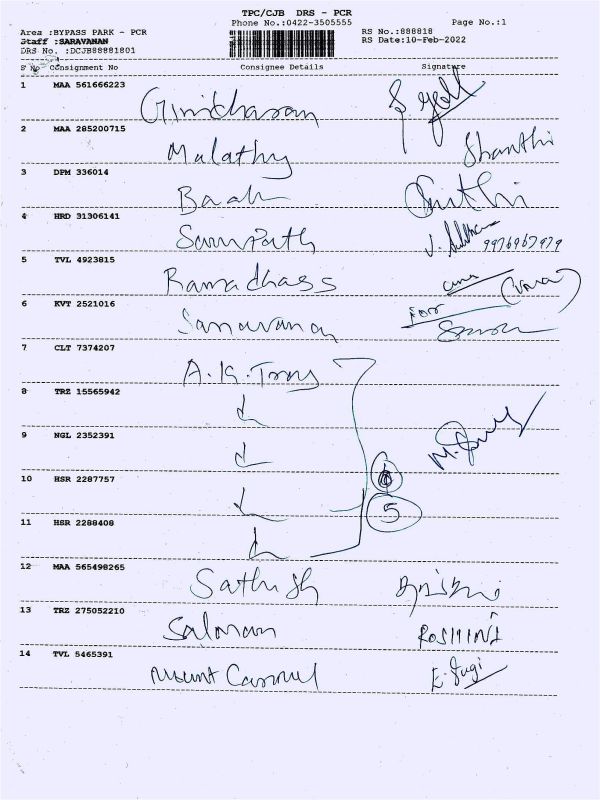 TPC/CJB DRS - PCR
Phone No.:0422-3505555 Page No.:1
Area :BYPASS PARK - PCR RS No.:888818
Staff :SARAVANAN RS Date:10-Feb-2022
DRS No. :DCJB88881801
S No Consignment No Consignee Details Signature
1 MAA 561666223
2 MAA 285200715 Malathy Shanthi
3 DPM 336014
4 HRD 31306141 Sampath 9976967979
5 TVL 4923815 Ramadhass
6 KVT 2521016 Saravanan For
7 CLT 7374207 A.K.
8 TRZ 15565942
9 NGL 2352391
10 HSR 2287757
11 HSR 2288408 5
12 MAA 565498265 Sathish
13 TRZ 275052210 Salman ROSHINI
14 TVL 5465391 Mount Carmel